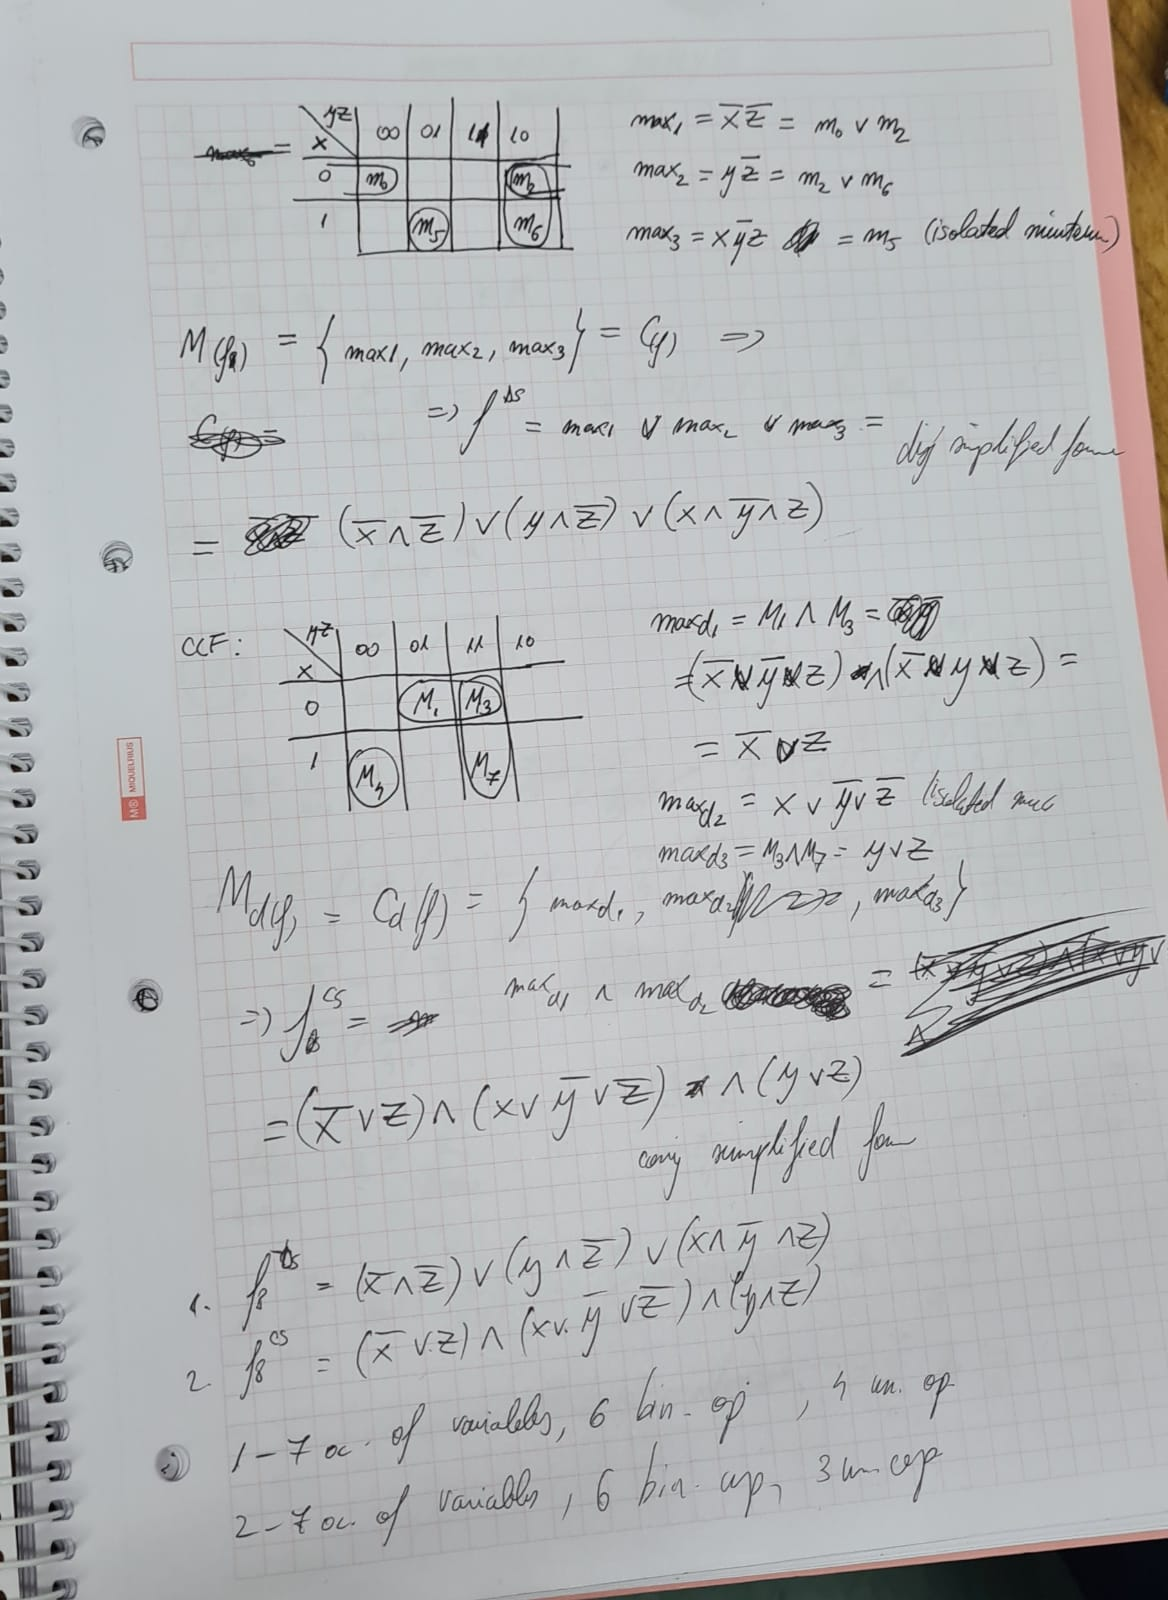 yz
x 00 01 11 10
0 m₀ m₂
1 m₅ m₆
=
max₁ = x̅ z̅ = m₀ ∨ m₂
max₂ = y z̅ = m₂ ∨ m₆
max₃ = x y̅ z = m₅ (isolated minterm)
M(f₈) = { max1, max₂, max₃ } = C(f) =>
=> f^DS = max₁ ∨ max₂ ∨ max₃ =
disj simplified form
= (x̅ ∧ z̅) ∨ (y ∧ z̅) ∨ (x ∧ y̅ ∧ z)
CCF:
yz
x 00 01 11 10
0 M₁ M₃
1 M₄ M₇
max_d₁ = M₁ ∧ M₃ =
= (x̅ ∨ y̅ ∨ z) ∧ (x̅ ∨ y ∨ z) =
= x̅ ∨ z
max_d₂ = x ∨ y̅ ∨ z̅ (isolated
max_d₃ = M₃ ∧ M₇ = y ∨ z
M_d(f) = C_d(f) = { max_d₁, max_d₂, max_d₃ }
=> f₈^CS = max_d1 ∧ max_d₂ =
= (x̅ ∨ z) ∧ (x ∨ y̅ ∨ z̅) ∧ (y ∨ z)
conj simplified form
1. f₈^DS = (x̅ ∧ z̅) ∨ (y ∧ z̅) ∨ (x ∧ y̅ ∧ z)
2. f₈^CS = (x̅ ∨ z) ∧ (x ∨ y̅ ∨ z̅) ∧ (y ∧ z)
1 - 7 oc. of variables, 6 bin. op, 4 un. op
2 - 7 oc. of variables, 6 bin. op, 3 un. op
MIQUELRIUS